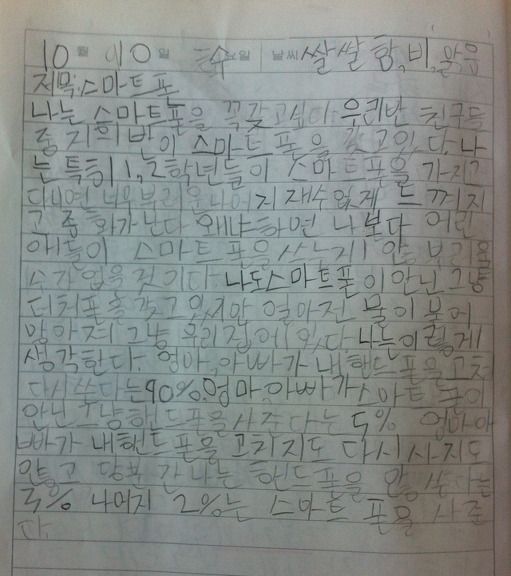 10월 10일 수요일 날씨 쌀쌀함, 비, 맑음
제목:스마트폰
나는 스마트폰을 꼭갖고싶다. 우리반 친구들
중 거의 반이 스마트폰을 갖고있다. 나
는 특히 1,2학년들이 스마트폰을 가지고
다니면 너무 부러운 나머지 재수없게 느껴지
고 중 화가난다 왜냐하면 나보다 어린
애들이 스마트폰을 쓰는지 안 부러울
수가 없을 것이다. 나도스마트폰이안닌그냥
터치폰을갖고있지만 얼마전 물이 묻어
망가져 그냥 우리집에 있다. 나는이렇게
생각한다. 엄마,아빠가 내 핸드폰을 고쳐
다시쓴다는90%.엄마,아빠가스마트폰이
안닌 그냥핸드폰을사주다는 5% 엄마아
빠가 내핸드폰을 고치지도 다시 사지도
않고 당분간 나는 핸드폰을 안 쓴다는
3% 나머지 2%는 스마트폰을 사준
다.